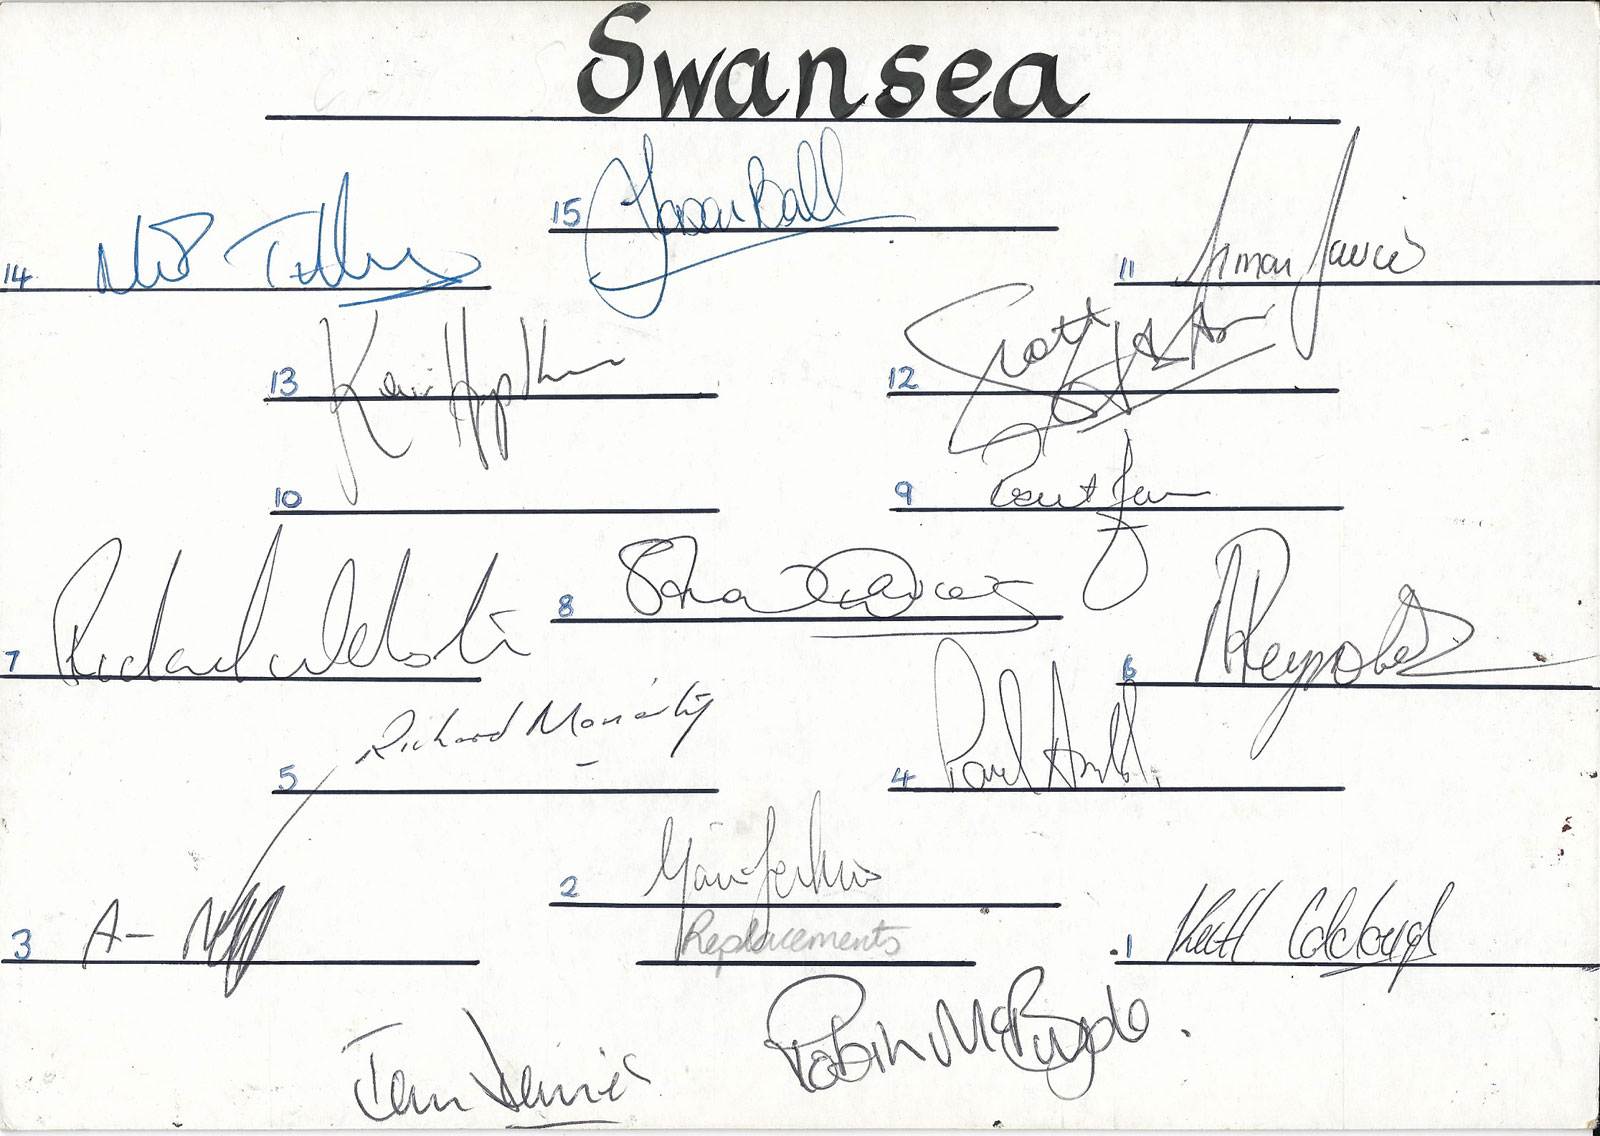 Swansea
15 Jason Ball
14
11 Simon Davies
13 Kevin Hopkins
12 Scott
10
9 Robert Jones
8 Stuart Davies
7 Richard Webster
6 A Reynolds
5 Richard Moriarty
4 Paul Arnold
2 Garin Jenkins
3
1 Keith Colclough
Replacements
Robin McBryde
Ian Davies